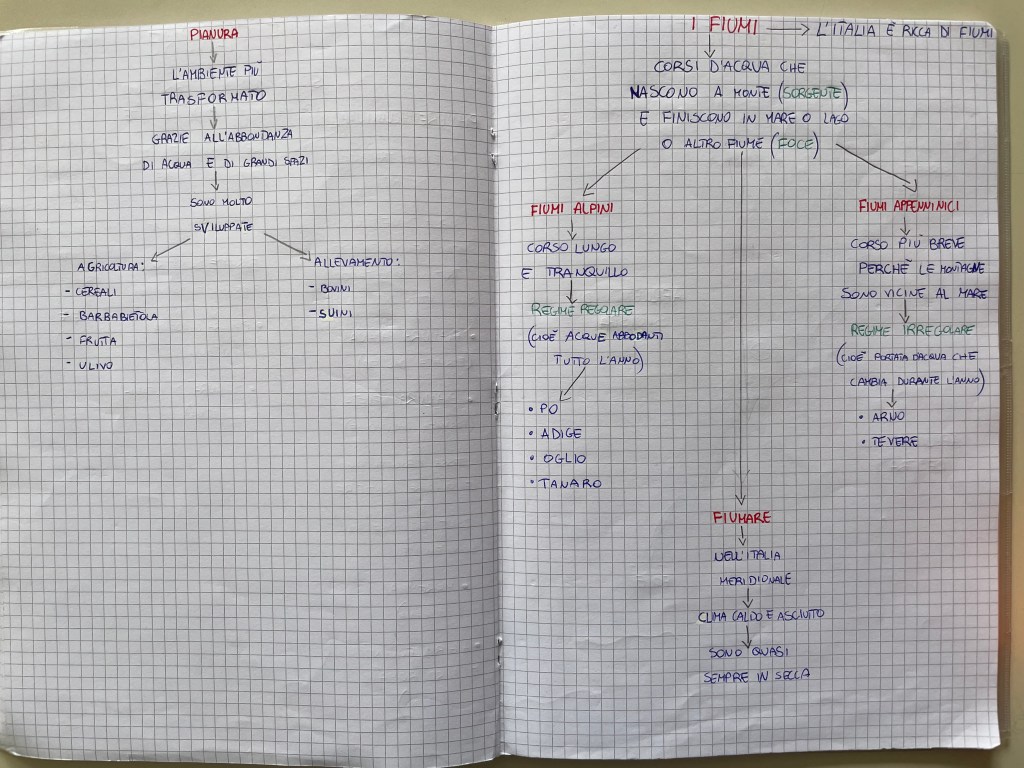 PIANURA
L'AMBIENTE PIÙ
TRASFORMATO
GRAZIE ALL'ABBONDANZA
DI ACQUA E DI GRANDI SPAZI
SONO MOLTO
SVILUPPATE
AGRICOLTURA:
- CEREALI
- BARBABIETOLA
- FRUTTA
- ULIVO
ALLEVAMENTO:
- BOVINI
- SUINI
I FIUMI → L'ITALIA È RICCA DI FIUMI
CORSI D'ACQUA CHE
NASCONO A MONTE (SORGENTE)
E FINISCONO IN MARE O LAGO
O ALTRO FIUME (FOCE)
FIUMI ALPINI
CORSO LUNGO
E TRANQUILLO
REGIME REGOLARE
(CIOÈ ACQUE ABBODANTI
TUTTO L'ANNO)
• PO
• ADIGE
• OGLIO
• TANARO
FIUMARE
NELL'ITALIA
MERIDIONALE
CLIMA CALDO E ASCIUTTO
SONO QUASI
SEMPRE IN SECCA
FIUMI APPENNINICI
CORSO PIÙ BREVE
PERCHÈ LE MONTAGNE
SONO VICINE AL MARE
REGIME IRREGOLARE
(CIOÈ PORTATA D'ACQUA CHE
CAMBIA DURANTE L'ANNO)
• ARNO
• TEVERE